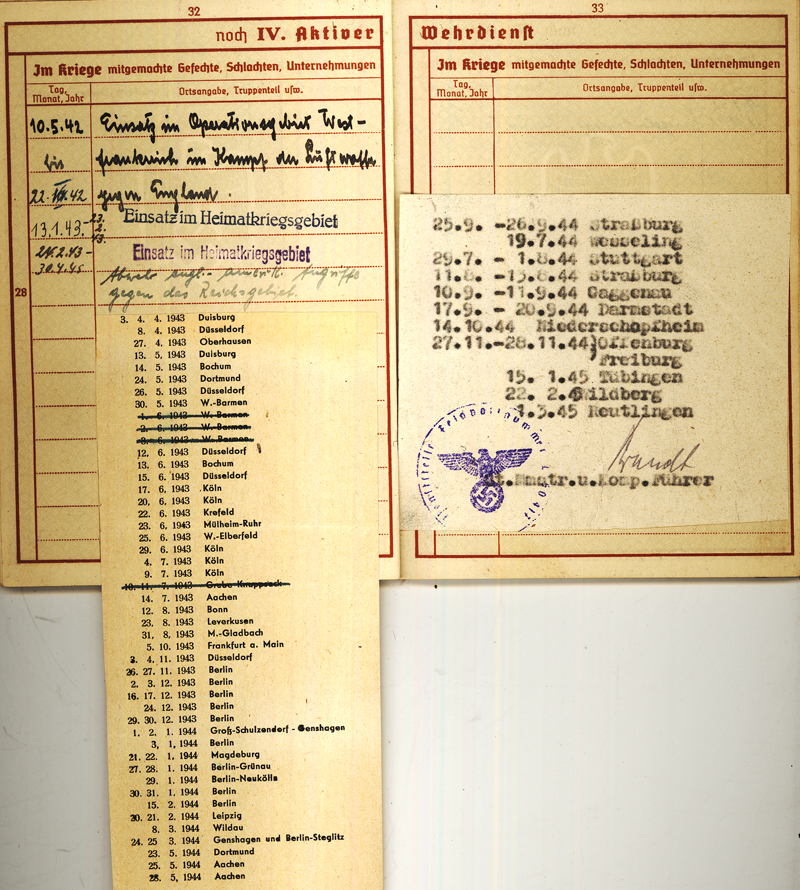 32
noch IV. Aktiver
Im Kriege mitgemachte Gefechte, Schlachten, Unternehmungen
Tag, Monat, Jahr
Ortsangabe, Truppenteil usw.
10.5.42 Einsatz im Operationsgebiet West-
bis frankreich im Kampf der Luftwaffe
22. 42 gegen England.
13.1.43.- 23.2.43. Einsatz im Heimatkriegsgebiet
24.2.43 - Einsatz im Heimatkriegsgebiet
30.4.45 Abwehr engl.- amerik. Angriffe
gegen das Reichsgebiet.
28
3. 4. 4. 1943 Duisburg
8. 4. 1943 Düsseldorf
27. 4. 1943 Oberhausen
13. 5. 1943 Duisburg
14. 5. 1943 Bochum
24. 5. 1943 Dortmund
26. 5. 1943 Düsseldorf
30. 5. 1943 W.-Barmen
1. 6. 1943 W.-Barmen
2. 6. 1943 W.-Barmen
3. 6. 1943 W.-Barmen
12. 6. 1943 Düsseldorf
13. 6. 1943 Bochum
15. 6. 1943 Düsseldorf
17. 6. 1943 Köln
20. 6. 1943 Köln
22. 6. 1943 Krefeld
23. 6. 1943 Mülheim-Ruhr
25. 6. 1943 W.-Elberfeld
29. 6. 1943 Köln
4. 7. 1943 Köln
9. 7. 1943 Köln
10. 11. 7. 1943 Grube Knappsack
14. 7. 1943 Aachen
12. 8. 1943 Bonn
23. 8. 1943 Leverkusen
31. 8. 1943 M.-Gladbach
5. 10. 1943 Frankfurt a. Main
3. 4. 11. 1943 Düsseldorf
26. 27. 11. 1943 Berlin
2. 3. 12. 1943 Berlin
16. 17. 12. 1943 Berlin
24. 12. 1943 Berlin
29. 30. 12. 1943 Berlin
1. 2. 1. 1944 Groß-Schulzendorf - Genshagen
3. 1. 1944 Berlin
21. 22. 1. 1944 Magdeburg
27. 28. 1. 1944 Berlin-Grünau
29. 1. 1944 Berlin-Neukölln
30. 31. 1. 1944 Berlin
15. 2. 1944 Berlin
20. 21. 2. 1944 Leipzig
8. 3. 1944 Wildau
24. 25 3. 1944 Genshagen und Berlin-Steglitz
23. 5. 1944 Dortmund
25. 5. 1944 Aachen
28. 5. 1944 Aachen
33
Wehrdienst
Im Kriege mitgemachte Gefechte, Schlachten, Unternehmungen
Tag, Monat, Jahr
Ortsangabe, Truppenteil usw.
25.9. -26.9.44 Straßburg
19.7.44 Wesseling
29.7. - 1.8.44 Stuttgart
11.8. -13.8.44 Straßburg
10.9. -11.9.44 Gaggenau
17.9. - 20.9.44 Darmstadt
14.10.44 Niederschopfheim
27.11.-28.11.44 Offenburg
Freiburg
15. 1.45 Tübingen
22. 2.45 Wildberg
1.3.45 Reutlingen
Dienststelle Feldpostnummer
Brandt
Lt.
u.Komp.Führer